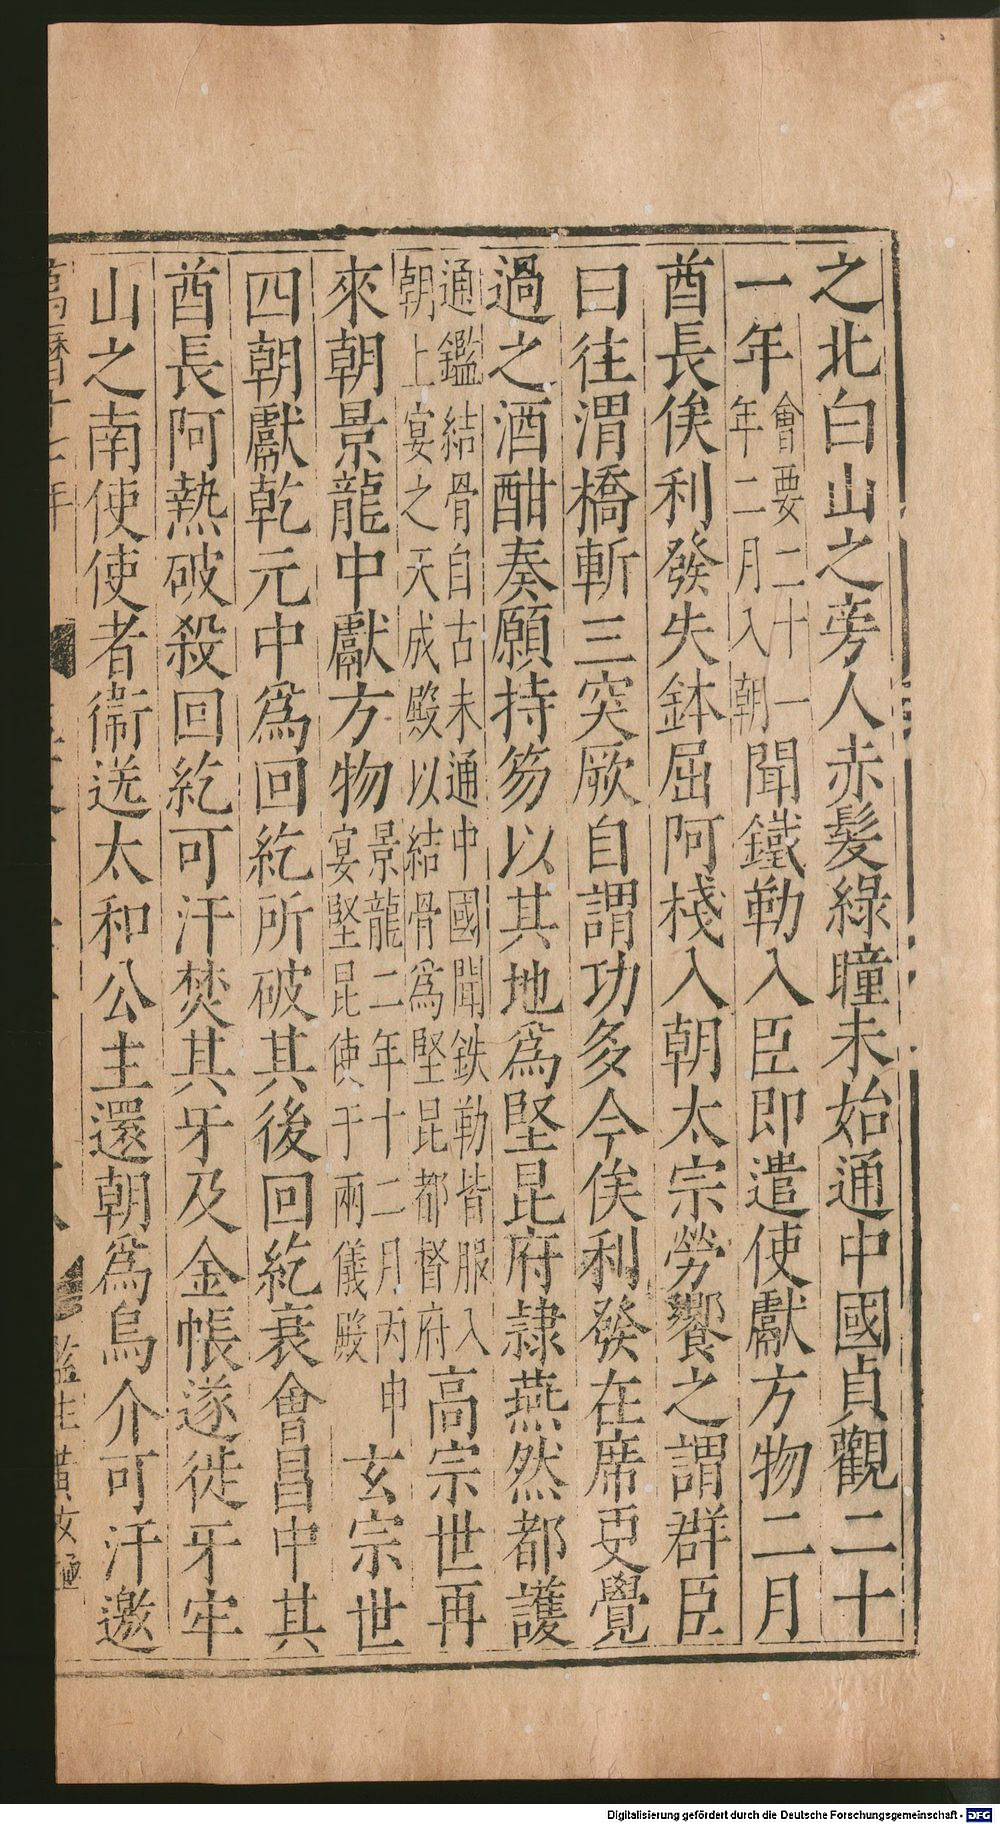 之北白山之旁人赤髮綠瞳未始通中國貞觀二十
一年會要二十一年二月入朝聞鐵勒入臣即遣使獻方物二月
酋長俟利發失鉢屈阿棧入朝太宗勞饗之謂群臣
曰往渭橋斬三突厥自謂功多今俟利發在席更覺
過之酒酣奏願持笏以其地爲堅昆府隷燕然都護
通鑑結骨自古未通中國聞鉄勒皆服入朝上宴之天成殿以結骨爲堅昆都督府高宗世再
來朝景龍中獻方物景龍二年十二月丙申宴堅昆使于兩儀殿玄宗世
四朝獻乾元中爲回紇所破其後回紇衰會昌中其
酋長阿熱破殺回紇可汗焚其牙及金帳遂徙牙牢
山之南使使者衞送太和公主還朝爲烏介可汗邀
萬曆十七年
監生黃汝
Digitalisierung gefördert durch die Deutsche Forschungsgemeinschaft - DFG